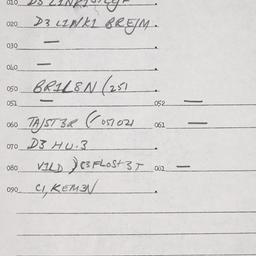 010 D3
020 D3 L1NK1 BREJM.
030 —
040 —
050 BR1L8N (251
051 — 052 —
060 TAJST3R (051021 061 —
070 D3 HU.3
080 V1LD ) C3FLOST3T 0 —
090 C1, KEM3N